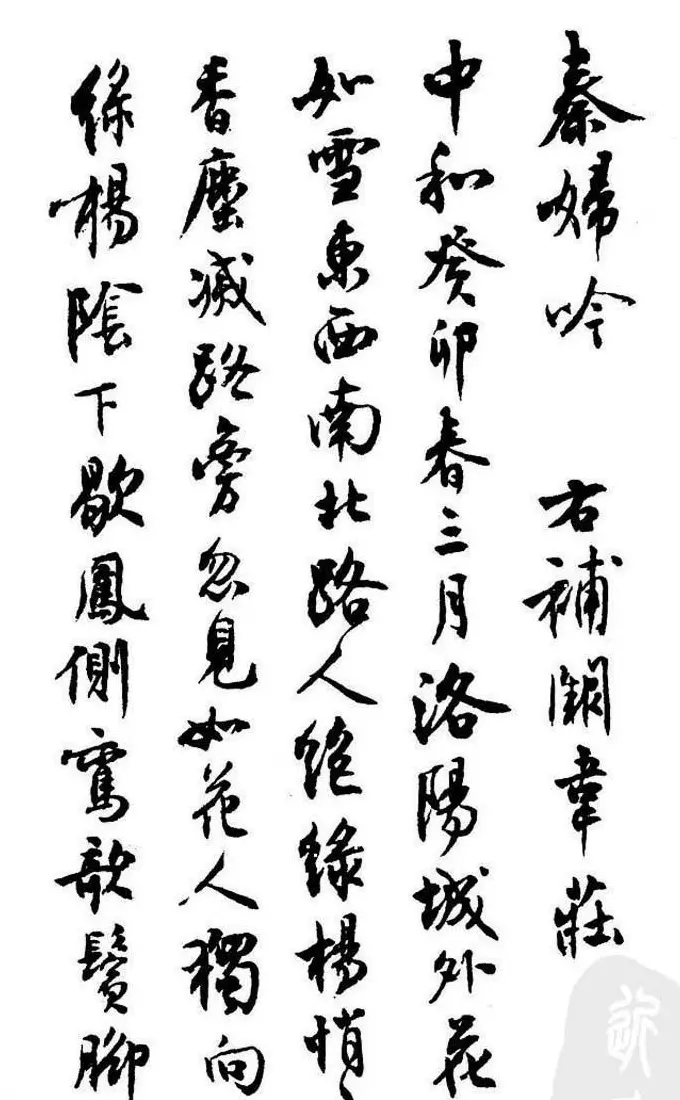 秦婦吟 右補闕韋莊
中和癸卯春三月洛陽城外花
如雪東西南北路人絕綠楊悄〻
香塵滅路旁忽見如花人獨向
綠楊陰下歇鳳側鸞欹鬢腳